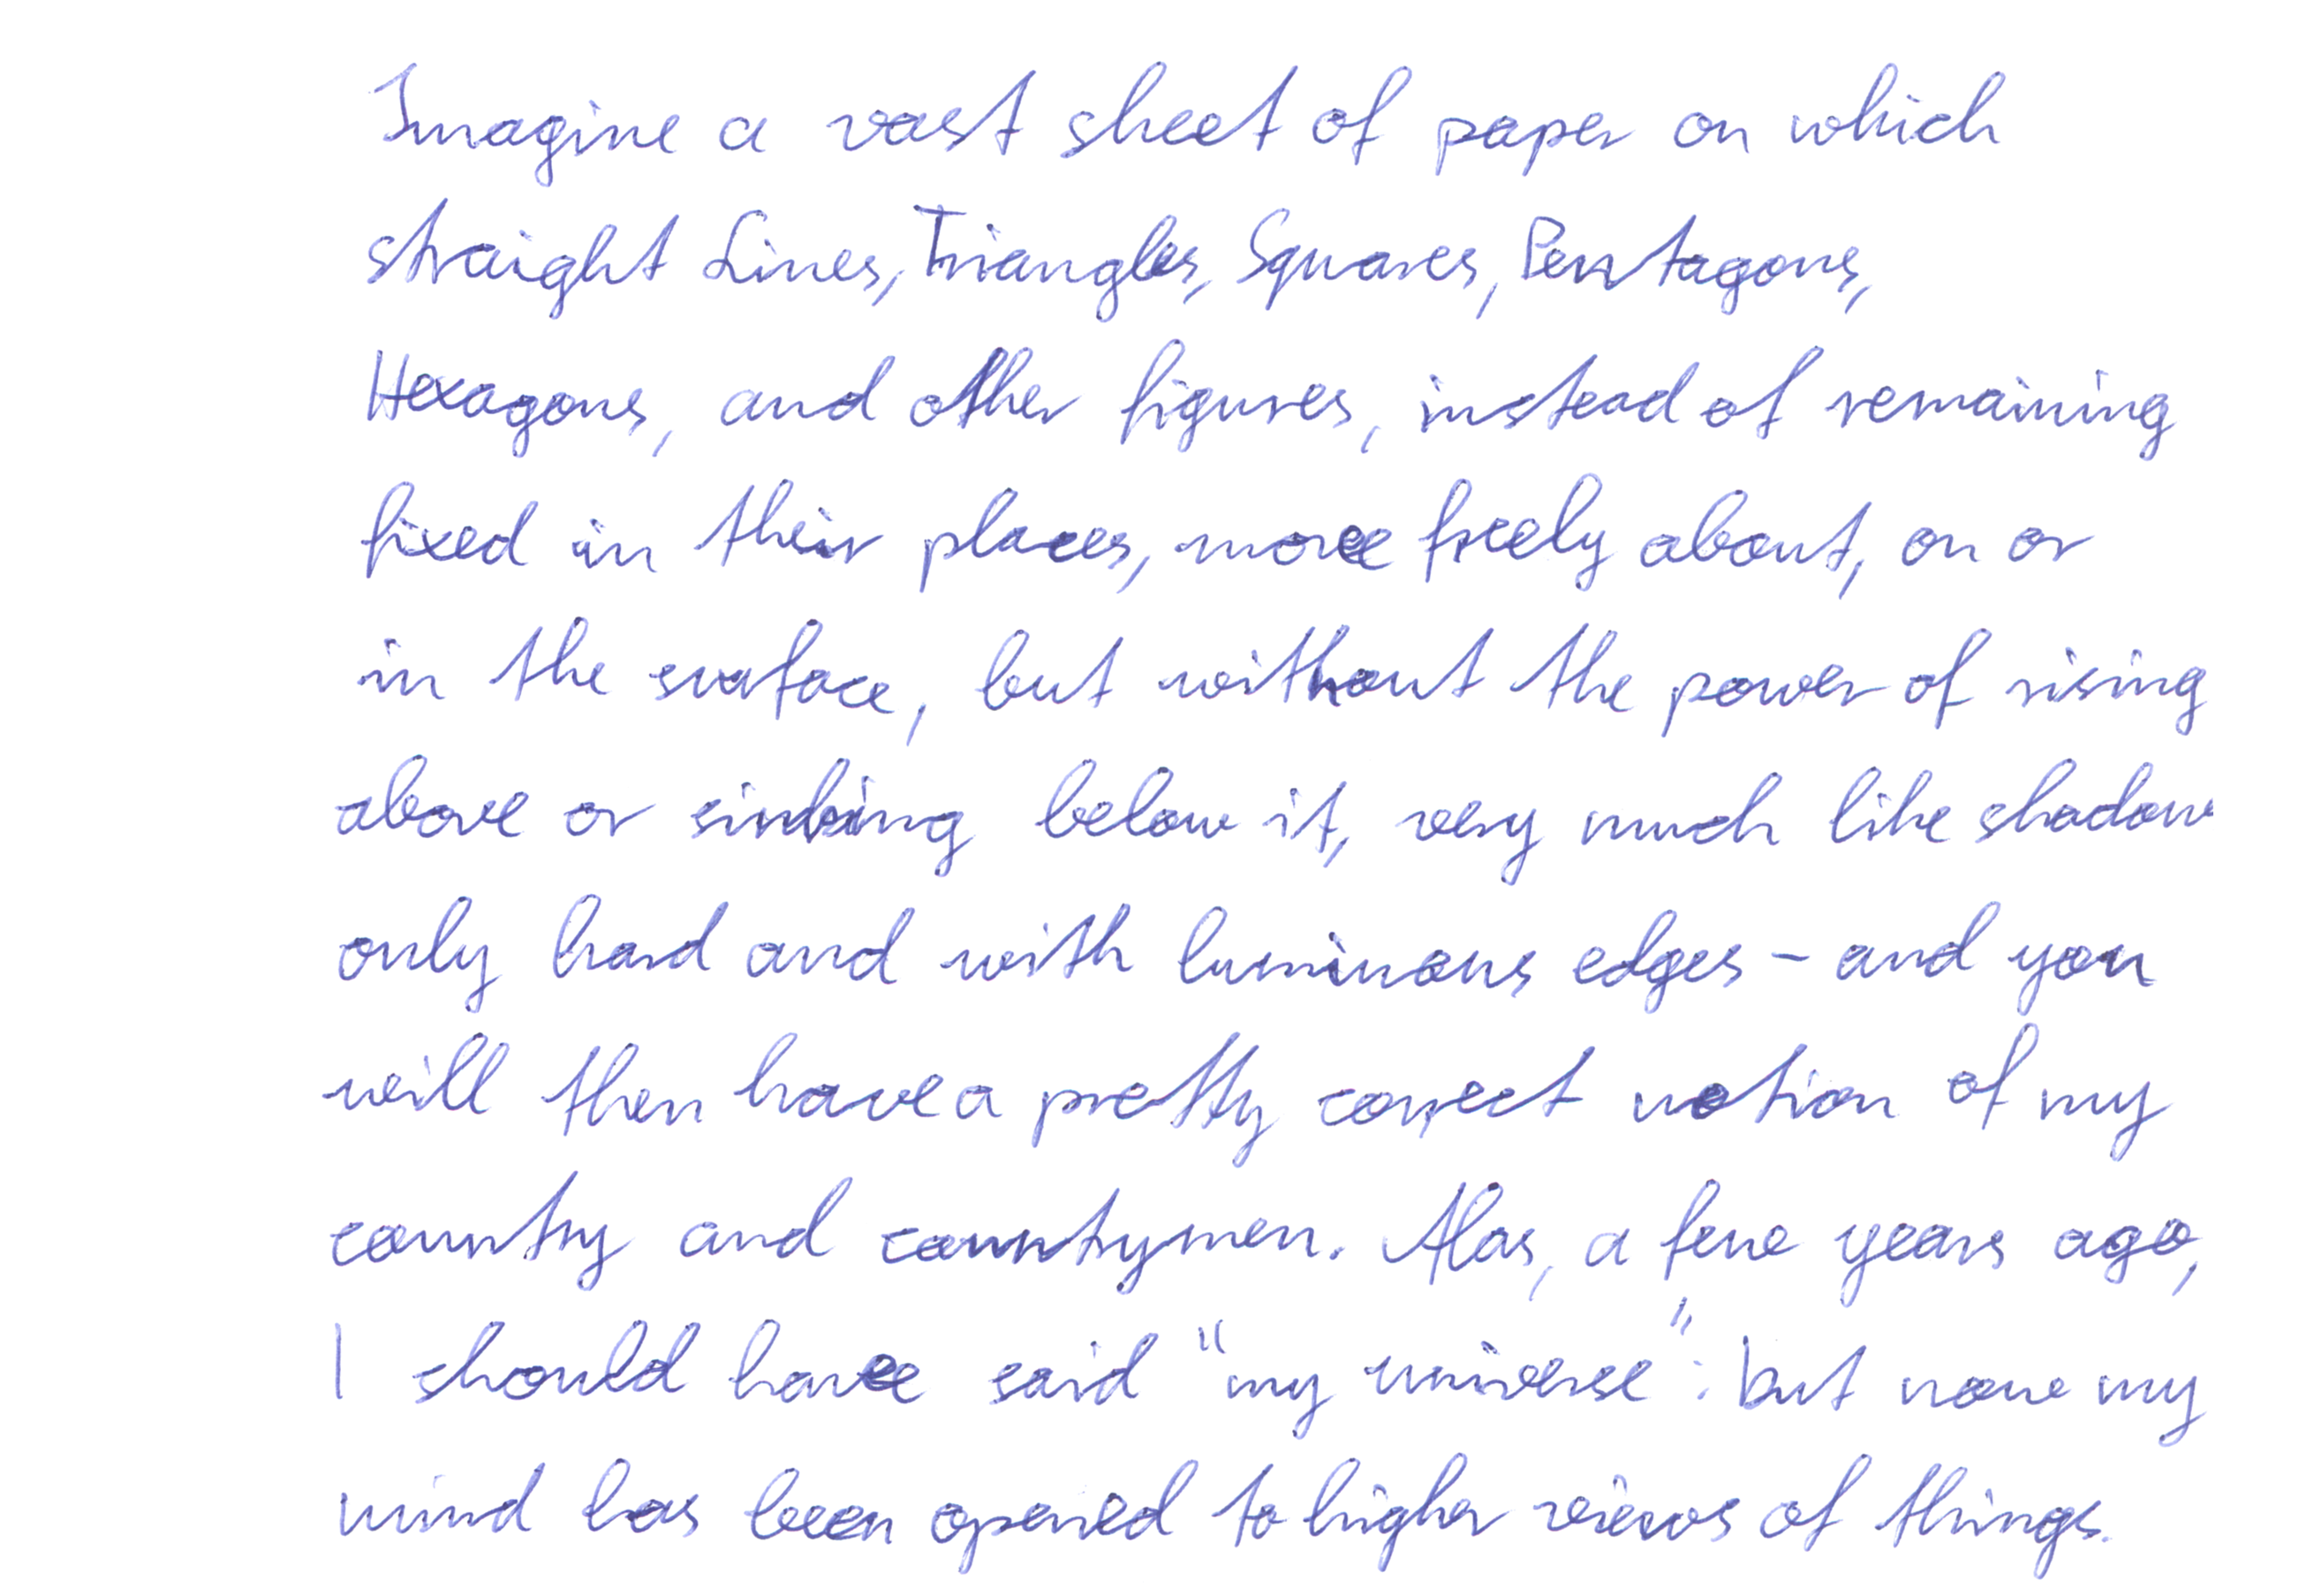 Imagine a vast sheet of paper on which
straight Lines, Triangles, Squares, Pentagons,
Hexagons, and other figures, instead of remaining
fixed in their places, move freely about, on or
in the surface, but without the power of rising
above or sinking below it, very much like shadow
only hard and with luminous edges – and you
will then have a pretty correct notion of my
country and countrymen. Alas, a few years ago,
I should have said "my universe": but now my
mind has been opened to higher views of things.